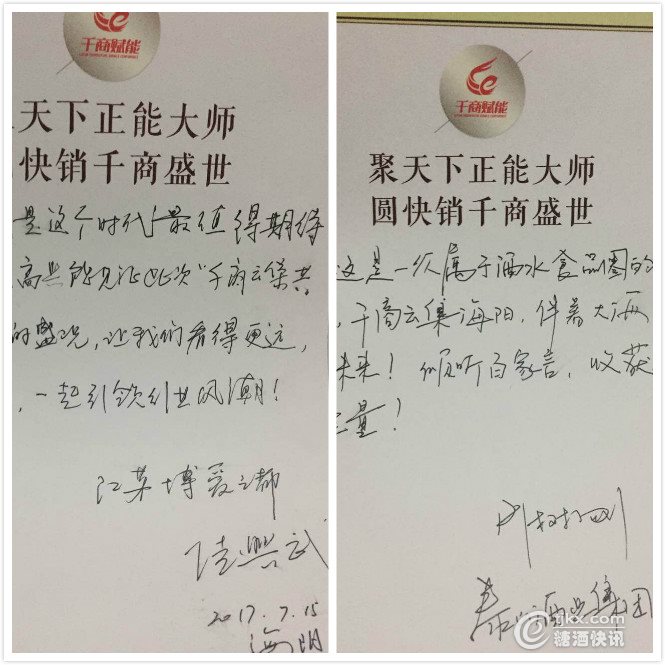 千商赋能
天下正能大师
快销千商盛世
是这个时代最值得期待
高兴能见证此次“千商云集共
的盛况，让我们看得更远，
，一起引领行业风潮！
江苏博爱之都
陆兴武
2017.7.15
海阳
千商赋能
聚天下正能大师
圆快销千商盛世
这是一次属于酒水食品圈的
，千商云集海阳，伴着大海
未来！倾听百家言，收获
量！
泰山酒业集团
tjkx.com
糖酒快讯